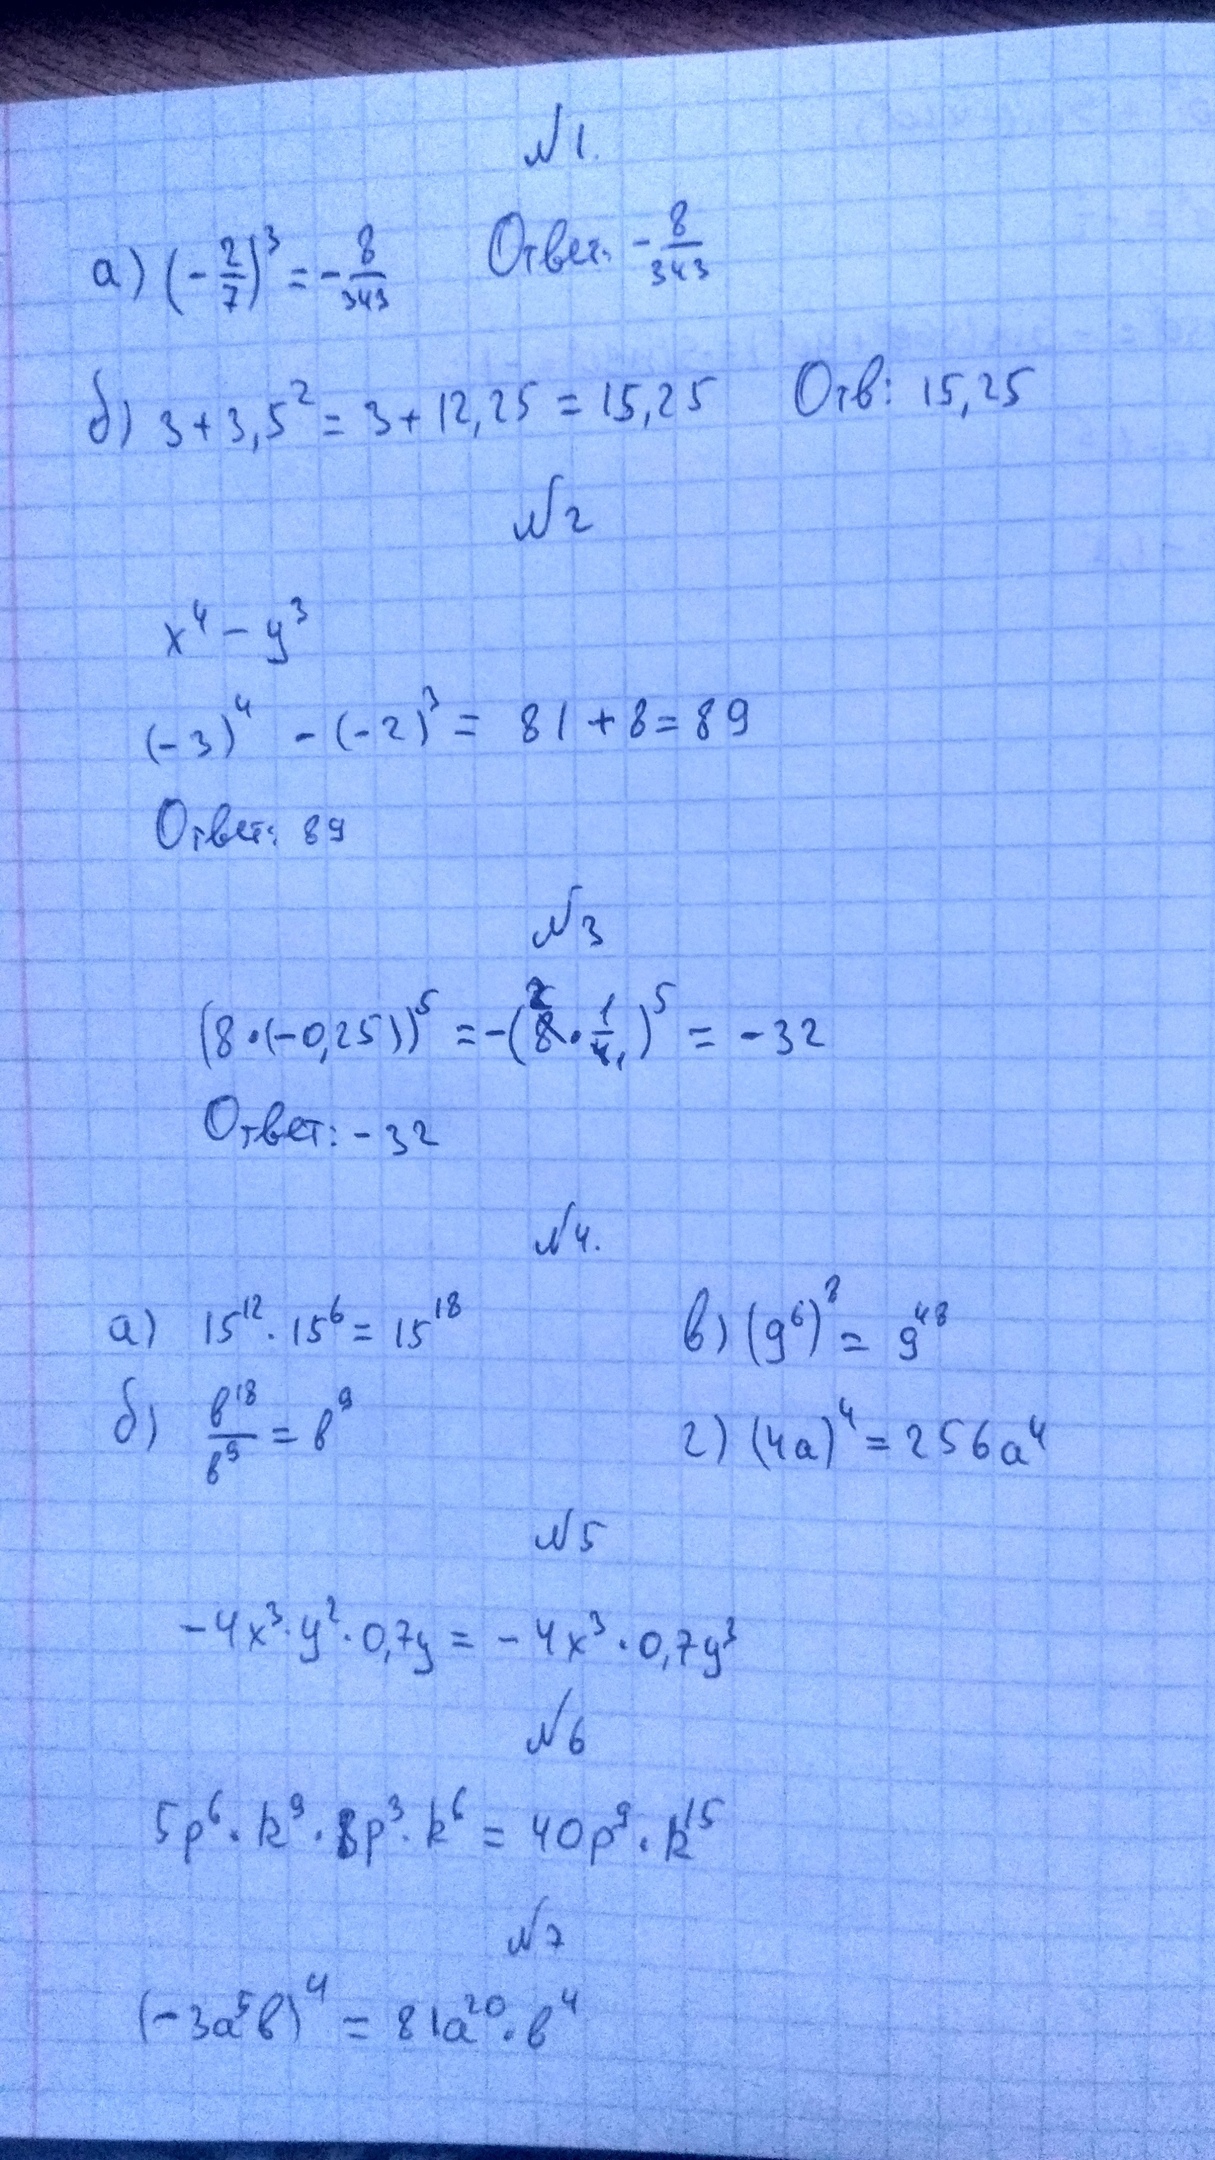 №1.
а) (-2/7)³ = -8/343 Ответ: -8/343
б) 3+3,5² = 3+12,25 = 15,25 Отв: 15,25
№2
x⁴ - y³
(-3)⁴ - (-2)³ = 81+8=89
Ответ: 89
№3
(8·(-0,25))⁵ = -(8·1/4)⁵ = -32
Ответ: -32
№4.
а) 15¹²·15⁶ = 15¹⁸ в) (9⁶)⁸ = 9⁴⁸
б) в¹⁸/в⁹ = в⁹ г) (4а)⁴ = 256а⁴
№5
-4x³·y²·0,7y = -4x³·0,7y³
№6
5p⁶·k⁹·8p³·k⁶ = 40p⁹·k¹⁵
№7
(-3а⁵в)⁴ = 81а²⁰·в⁴